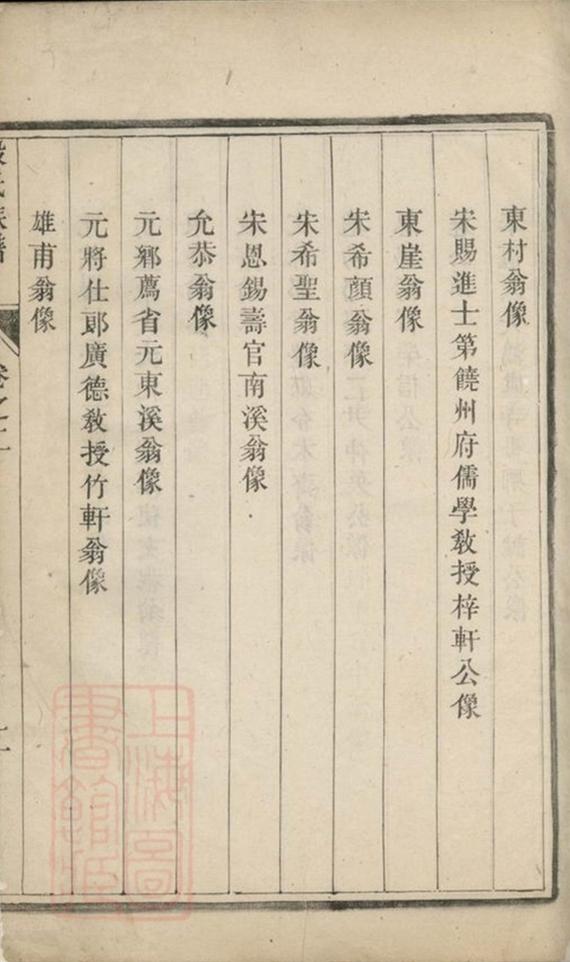 東村翁像
宋賜進士第饒州府儒學敎授梓軒公像
東崖翁像
宋希顏翁像
宋希聖翁像
宋恩錫壽官南溪翁像
允恭翁像
元鄉薦省元東溪翁像
元將仕郎廣德敎授竹軒翁像
雄甫翁像
氏族譜
卷之一
上海圖書館藏